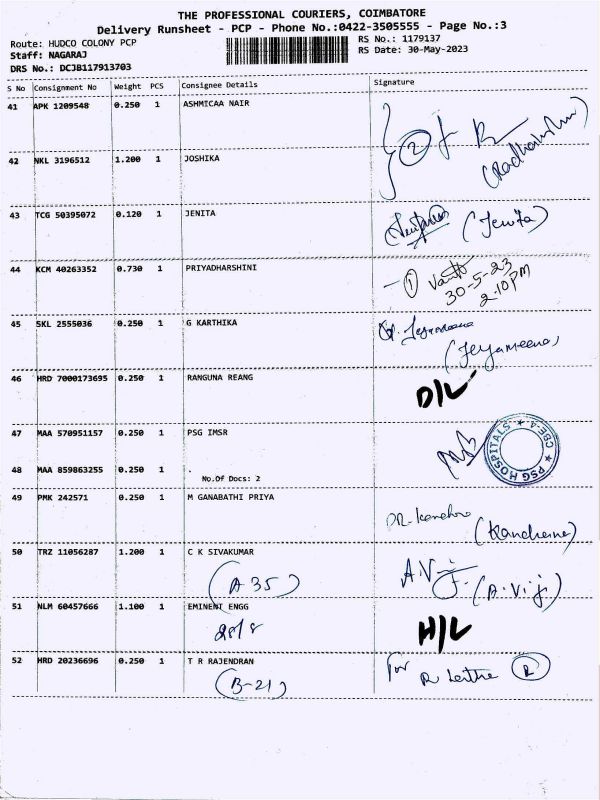 THE PROFESSIONAL COURIERS, COIMBATORE
Delivery Runsheet - PCP - Phone No.:0422-3505555 - Page No.:3
Route: HUDCO COLONY PCP RS No.: 1179137
Staff: NAGARAJ RS Date: 30-May-2023
DRS No.: DCJB117913703
S No Consignment No Weight PCS Consignee Details Signature
41 APK 1209548 0.250 1 ASHMICAA NAIR
2
42 NKL 3196512 1.200 1 JOSHIKA
43 TCG 50395072 0.120 1 JENITA
(Jenita)
44 KCM 40263352 0.730 1 PRIYADHARSHINI
1
30-5-23
2.10PM
45 SKL 2555036 0.250 1 G KARTHIKA
(Jeyameena)
46 HRD 7000173695 0.250 1 RANGUNA REANG
D/L
47 MAA 570951157 0.250 1 PSG IMSR
PSG HOSPITALS * CBE-4 *
48 MAA 859863255 0.250 1 .
No.Of Docs: 2
49 PMK 242571 0.250 1 M GANABATHI PRIYA
50 TRZ 11056287 1.200 1 C K SIVAKUMAR
(A 35) A.Viji (A.Viji)
51 NLM 60457666 1.100 1 EMINENT ENGG
H/L
52 HRD 20236696 0.250 1 T R RAJENDRAN
(B-21) for R